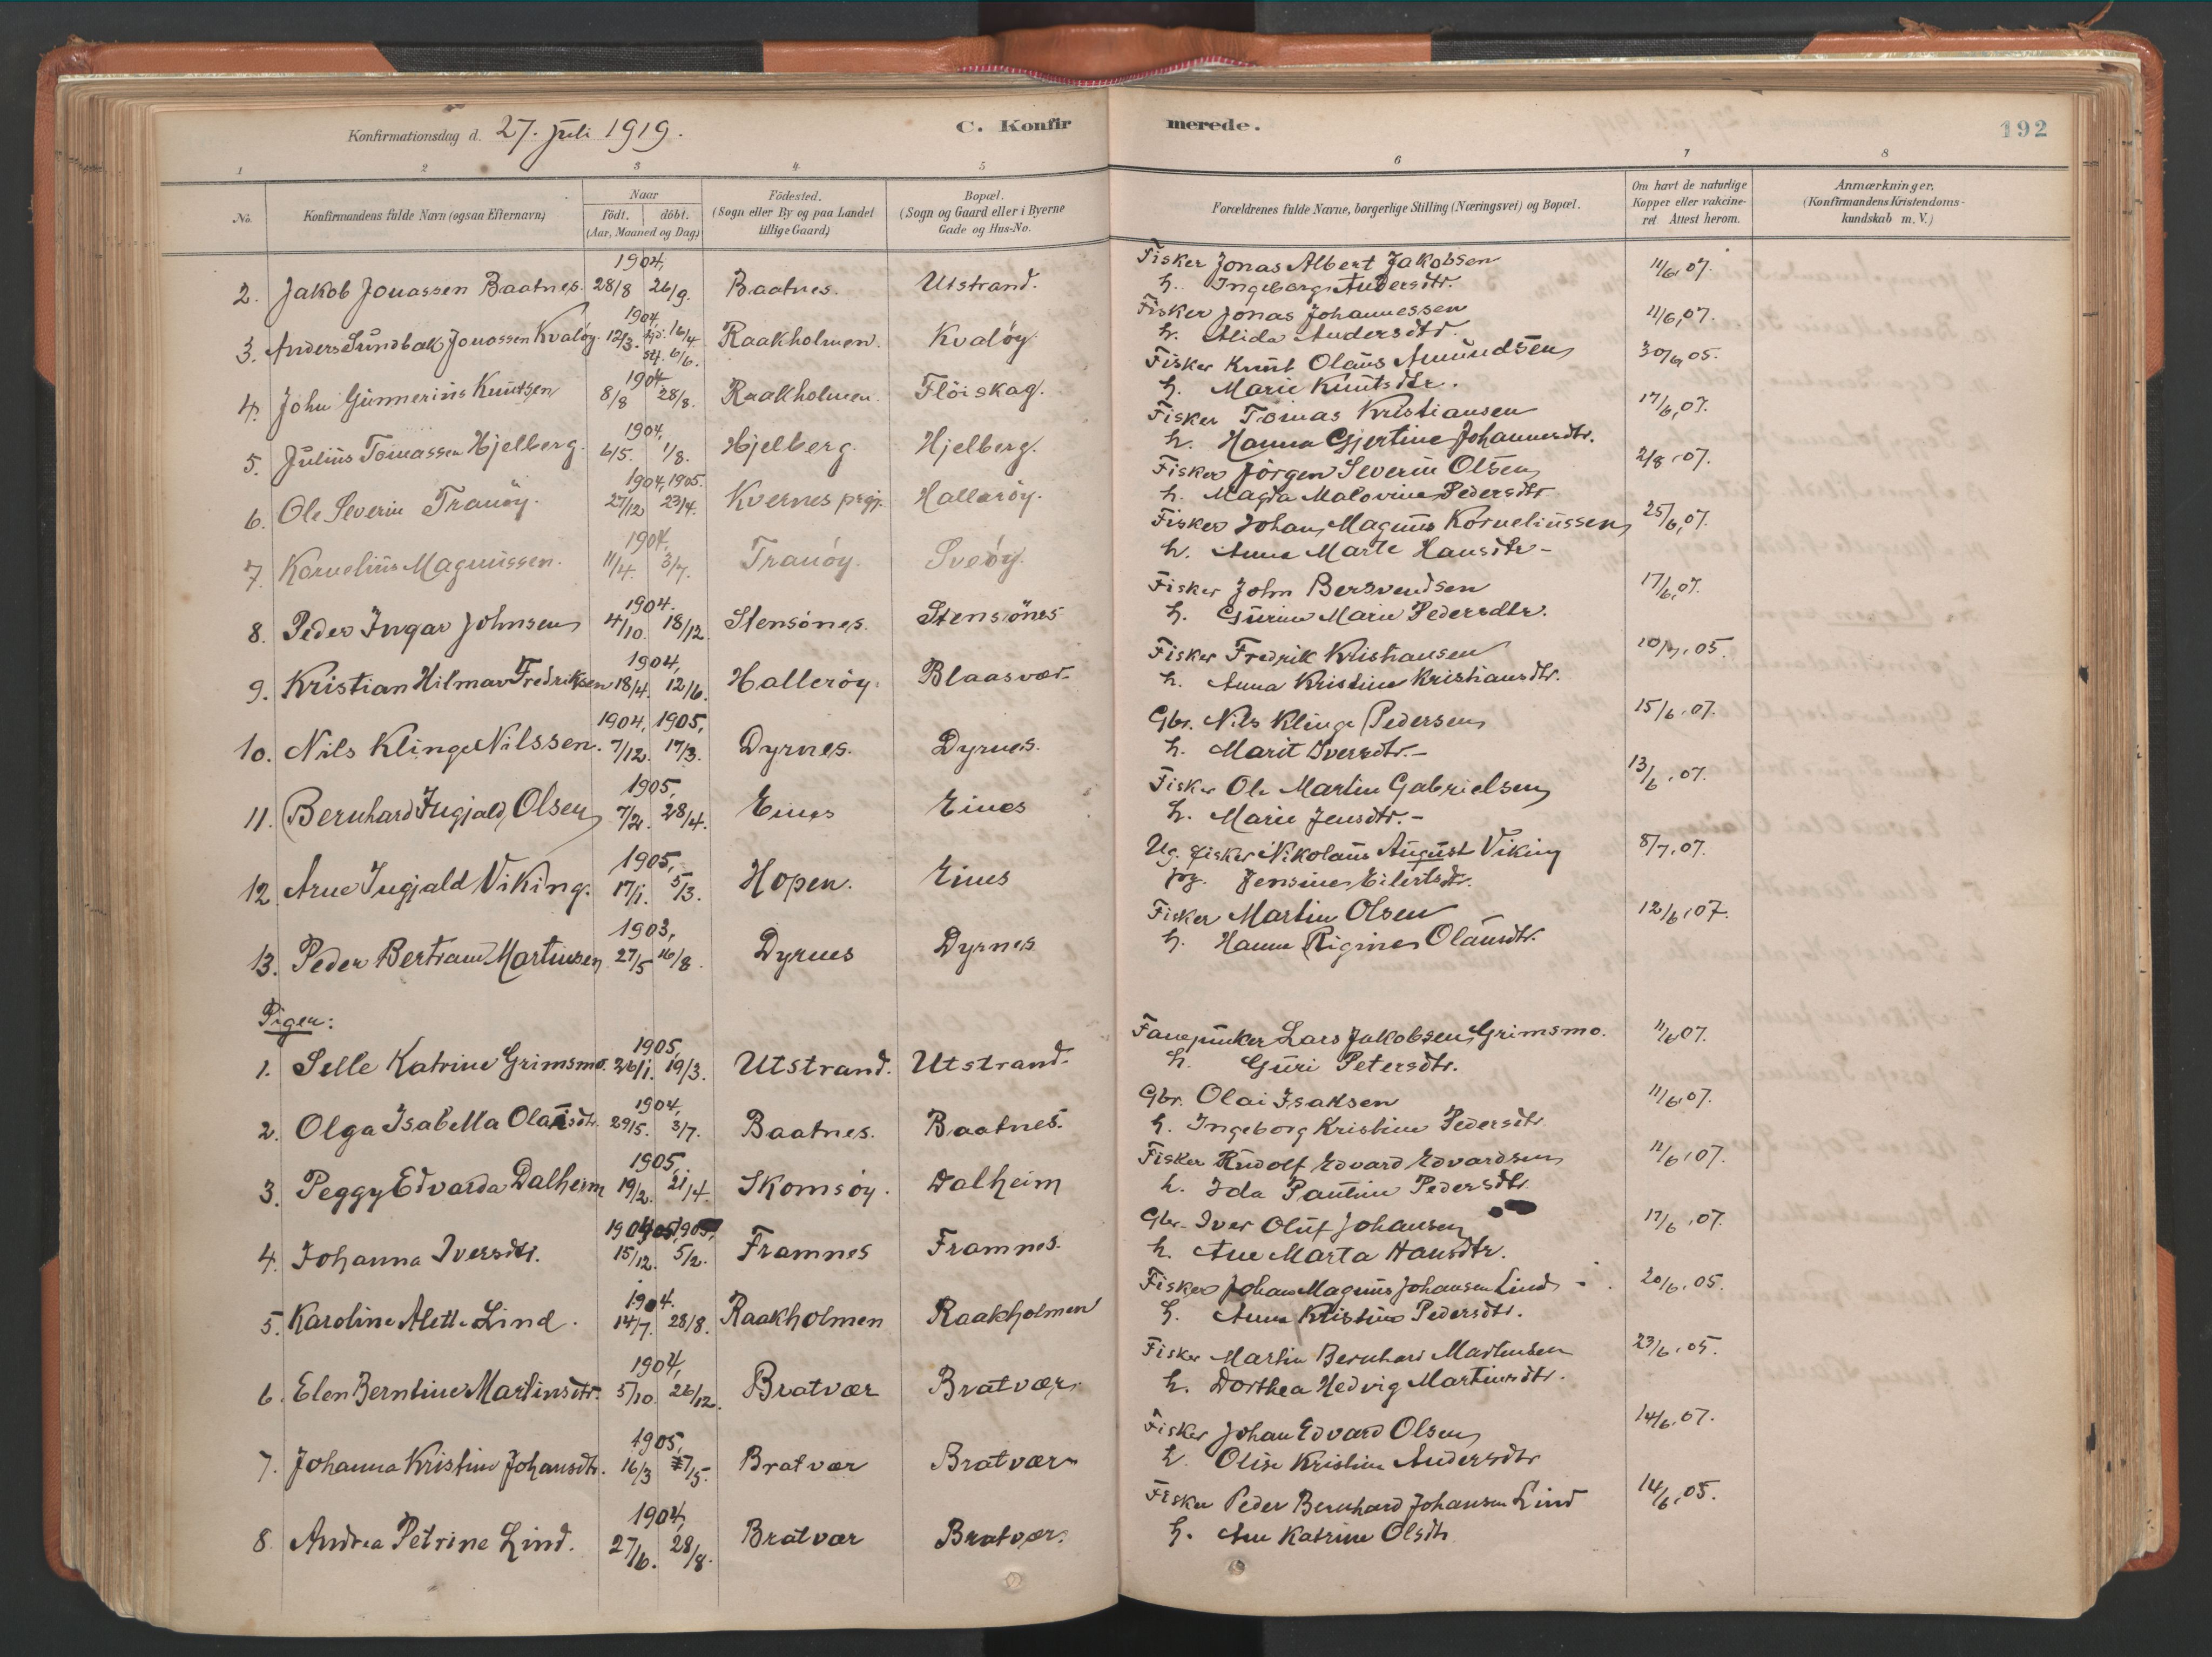 Konfirmationsdag d. 27. juli 1919.
C. Konfirmerede.
192
1 2 3 4 5 6 7 8
No.
Konfirmandens fulde Navn (ogsaa Efternavn)
Naar
födt. döbt.
(Aar, Maaned og Dag)
Födested.
(Sogn eller By og paa Landet
tillige Gaard)
Bopæl.
(Sogn og Gaard eller i Byerne
Gade og Hus-No.
Forældrenes fulde Navne, borgerlige Stilling (Næringsvei) og Bopæl.
Om havt de naturlige
Kopper eller vakcine-
ret. Attest herom.
Anmærkninger.
(Konfirmandens Kristendoms-
kundskab m. V.)
1904,
2. Jakob Jonassen Baatnes. 28/8 26/9. Baatnes. Utstrand.
Fisker Jonas Albert Jakobsen 11/6,07.
h. Ingeborg Andersdtr.
1904
3. Anders Sundbakk Jonassen Kvalöy. 12/3. hjd. 16/4. st. 6/6. Raakholmen. Kvalöy.
Fisker Jonas Johannessen 11/6,07.
h. Alida Andersdtr.
1904
4. John Gunnerius Knutsen 8/8 28/8. Raakholmen. Flöiskag.
Fisker Knut Olaus Amundsen 30/6,05.
h. Marie Knutsdtr.
1904,
5. Julius Tomassen Hjelberg. 6/5. 1/8. Hjelberg. Hjelberg.
Fisker Tomas Kristiansen 17/6,07.
h. Hanna Gjertine Johannesdtr.
1904, 1905.
6. Ole Severin Tranöy. 27/12 23/4. Kvernes prgj. Halleröy.
Fisker Jörgen Severin Olsen 2/8,07.
h. Magda Malovine Pedersdtr
1904,
7. Kornelius Magnussen. 11/4. 3/7. Tranöy. Sveöy.
Fisker Johan Magnus Korneliussen 25/6,07.
h. Anne Marte Hansdtr-
1904.
8. Peder Ingar Johnsen 4/10. 18/12. Stensönes. Stensönes
Fisker John Bersvendsen 17/6,07.
h. Gurine Marie Pedersdtr.
1904,
9. Kristian Hilmar Fredriksen 18/4. 12/6. Halleröy. Blaasvær.
Fisker Fredrik Kristiansen 10/7,05.
h. Anna Kristine Kristiansdtr.
1904, 1905,
10. Nils Klinge Nilssen. 7/12. 17/3. Dyrnes. Dyrnes.
Gbr. Nils Klinge Pedersen 15/6,07.
h. Marit Iversdtr.-
1905,
11. Bernhard Ingjald Olsen 7/2. 28/4. Eines Eines
Fisker Ole Martin Gabrielsen 13/6,07.
h. Marie Jensdtr.-
1905,
12. Arne Ingjald Viking. 17/1. 5/3. Hopen. Eines
Ug. fisker Nikolaus August Viking 8/7,07.
pg. Jensine Eilertsdtr.
1903,
13. Peder Bertram Martinsen 27/5 16/8. Dyrnes Dyrnes
Fisker Martin Olsen 12/6,07.
h. Hanna Rigine Olausdtr.
Piger:
1905,
1. Selle Katrine Grimsmo. 26/1. 19/3. Utstrand. Utstrand.
Fanejunker Lars Jakobsen Grimsmo. 11/6,07.
h. Guri Petersdtr.
1904,
2. Olga Isabella Olaisdtr. 29/5. 3/7. Baatnes. Baatnes.
Gbr. Olai Isaksen 11/6,07.
h. Ingeborg Kristine Pedersdtr
1905,
3. Peggy Edvarda Dalheim 19/2. 21/4. Skomsöy. Dalheim
Fisker Rudolf Edvard Edvardsen 11/6,07.
h. Ida Pauline Pedersdtr
1904, 1905,
4. Johanna Iversdtr. 15/12. 5/2. Framnes Framnes.
Gbr. Iver Oluf Johansen 17/6,07.
h. Ane Marta Hansdtr.
1904.
5. Karoline Alette Lind. 14/7. 28/8. Raakholmen Raakholmen
Fisker Johan Magnus Johansen Lind 20/6,05.
h. Anna Kristine Pedersdtr.
1904,
6. Elen Berntine Martinsdtr. 5/10. 26/12. Bratvær Bratvær.
Fisker Martin Bernhard Martinsen 23/6,05.
h. Dorthea Hedvig Martinsdtr.
1905,
7. Johanna Kristine Johansdtr. 16/3 7/5. Bratvær Bratvær
Fisker Johan Edvard Olsen 14/6,07.
h. Olise Kristine Andersdtr
1904,
8. Andrea Petrine Lind. 27/6. 28/8. Bratvær Bratvær.
Fisker Peder Bernhard Johansen Lind 14/6,05.
h. Ane Katrine Olsdtr